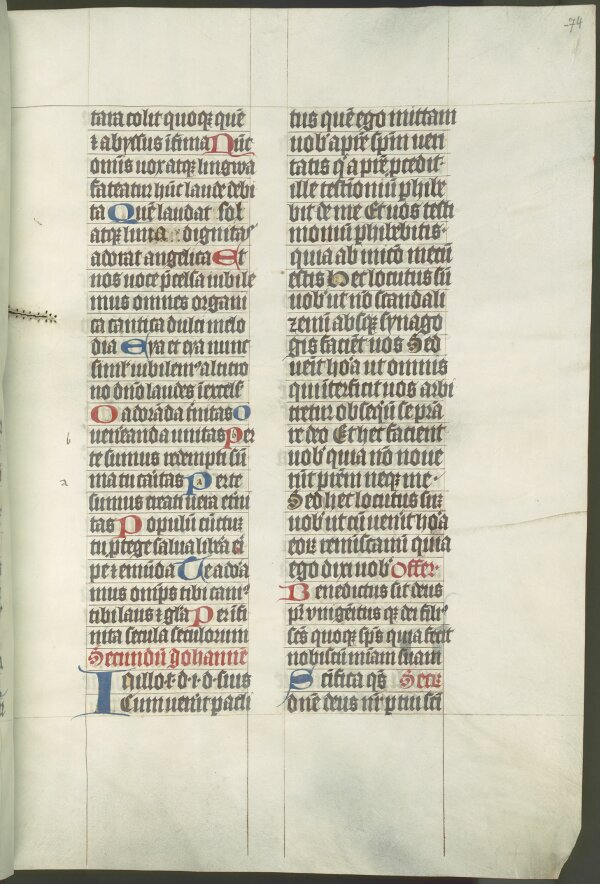 74
tara colit quoqꝫ quē
⁊ abyssus īfima Nūc
om̄is uox atqꝫ lingwa
fateatur hūc laude debi
ta Quē laudat sol
atqꝫ luna dignitas
adorat angelica Et
nos uoce p̄celsa iubile
mus omnes organi
ca cantica dulci melo
dia Eya et eya nunc
simul iubilem᷑ altitro
no dn̄o laudes ī excelsꝭ
O adorāda t͛nitas O
uen̄eranda unitas Per
te sumus redempti sū
ma tu caritas Per te
sumus creati uera et͛ni
tas Populū cūctuꝫ
tu ꝓtege salua libera e͛i
pe ⁊ emūda Te adora
mus om̄ps tibi canim᷑
tibi laus ⁊ gl̄a Per īfi
nita secula seculorum
Secundū Johannē
I n illo t̄ d i d suis
Cum uen͛it pacli
tus quē ego mittam
uobꝭ a pr̄e sp̄m ueri
tatis q̄ a pr̄e ꝓcedit
ille testioniū phibe
bit de me Et uos testi
moniū phibebitis
quia ab inicio mecū
estis hec locutus sū
uobꝭ ut nō scandali
zemī absqꝫ synago
gis facient uos Sed
uenit hora ut omnis
qui īterficit uos arbi
tretur obsequiū se pr̄a
re deo Et hec facient
uobꝭ quia nō noue
rūt prēm neqꝫ me
Sed hec locutus suꝫ
uobꝭ ut cū uen͛it hora
eoꝝ reminiscamī quia
ego dixi uobꝭ Offer
Benedictus sit deus
pr̄ vnigenitus qꝫ dei filiꝰ
sc̄s quoqꝫ sp̄s quia fecit
nobiscū mīam suam
Sc̄ifica qs̄ Secr̄
dn̄e deus nr̄ ꝑ tui sc̄i
b
a